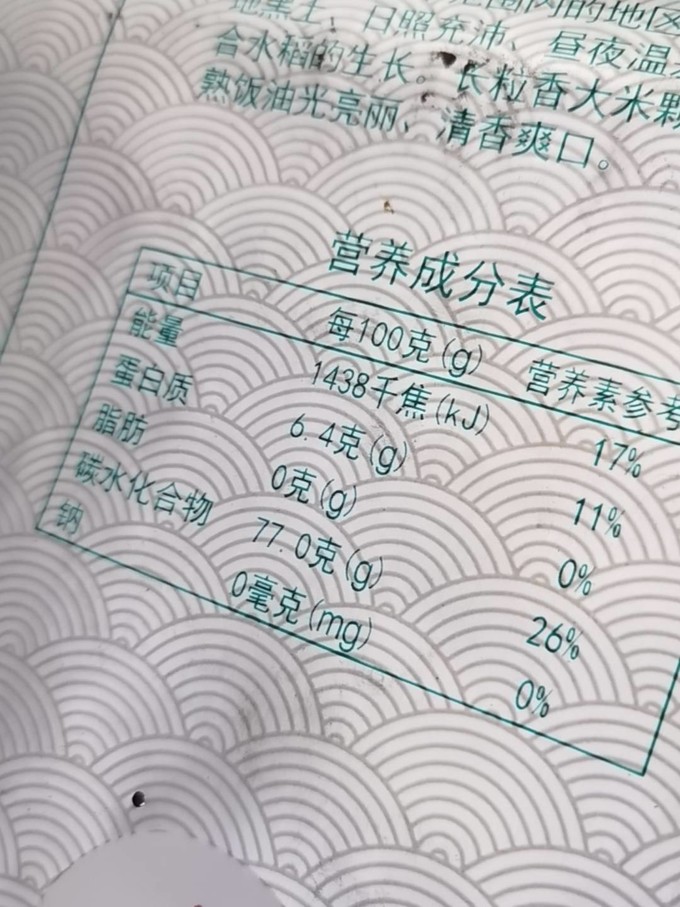 地黑土、日照充沛、昼夜温
合水稻的生长。长粒香大米颗
熟饭油光亮丽、清香爽口。
营养成分表
项目 每100克(g) 营养素参考
能量 1438千焦(kJ) 17%
蛋白质 6.4克(g) 11%
脂肪 0克(g) 0%
碳水化合物 77.0克(g) 26%
钠 0毫克(mg) 0%